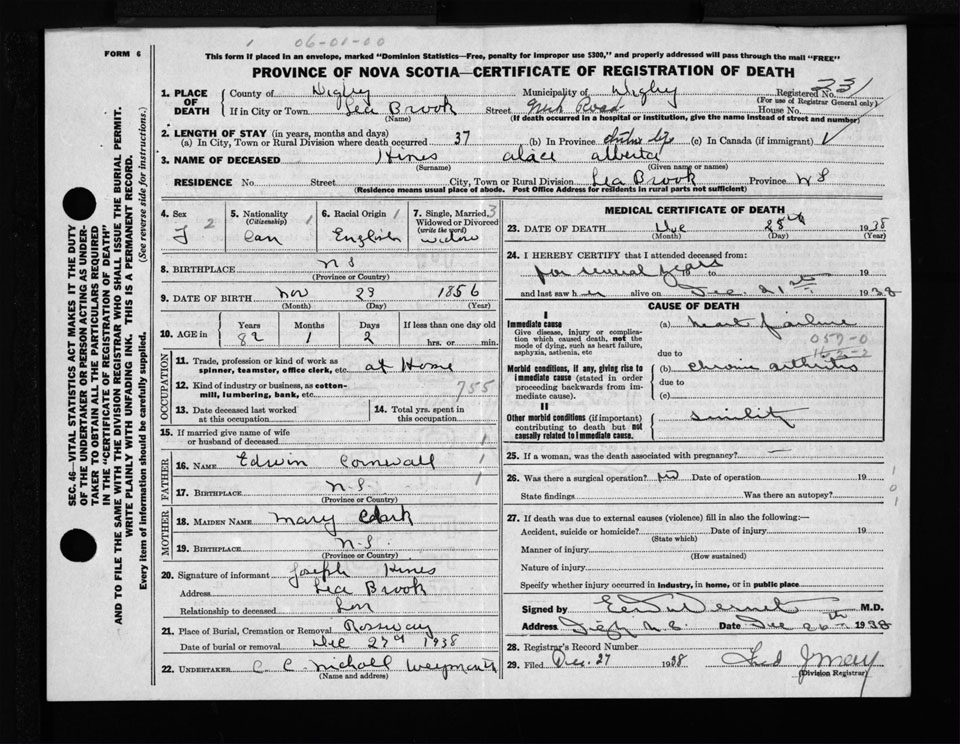 06-01-00
FORM 6
This form if placed in an envelope, marked "Dominion Statistics—Free, penalty for improper use $300," and properly addressed will pass through the mail "FREE"
PROVINCE OF NOVA SCOTIA—CERTIFICATE OF REGISTRATION OF DEATH
SEC. 46—VITAL STATISTICS ACT MAKES IT THE DUTY
OF THE UNDERTAKER OR PERSON ACTING AS UNDER-
TAKER TO OBTAIN ALL THE PARTICULARS REQUIRED
IN THE "CERTIFICATE OF REGISTRATION OF DEATH"
AND TO FILE THE SAME WITH THE DIVISION REGISTRAR WHO SHALL ISSUE THE BURIAL PERMIT.
WRITE PLAINLY WITH UNFADING INK. THIS IS A PERMANENT RECORD.
Every item of information should be carefully supplied. (See reverse side for instructions.)
1. PLACE OF DEATH County of Digby Municipality of Digby Registered No. 331
(For use of Registrar General only)
If in City or Town Sea Brook Street Road House No.
(Name) (If death occurred in a hospital or institution, give the name instead of street and number)
2. LENGTH OF STAY (in years, months and days)
(a) In City, Town or Rural Division where death occurred 37 (b) In Province entire life (c) In Canada (if immigrant)
3. NAME OF DECEASED Hines alace alberta
(Surname) (Given name or names)
RESIDENCE No. Street City, Town or Rural Division Sea Brook Province N S
(Residence means usual place of abode. Post Office Address for residents in rural parts not sufficient)
4. Sex 2 F
5. Nationality (Citizenship) 1 Can
6. Racial Origin 1 English
7. Single, Married, Widowed or Divorced (write the word) 3 widow
8. BIRTHPLACE N S
(Province or Country)
9. DATE OF BIRTH Nov 23 1856
(Month) (Day) (Year)
10. AGE in Years 82 Months 1 Days 2 If less than one day hrs. or min.
OCCUPATION
11. Trade, profession or kind of work as spinner, teamster, office clerk, etc. at Home
12. Kind of industry or business, as cotton-mill, lumbering, bank, etc. 755
13. Date deceased last worked at this occupation
14. Total yrs. spent in this occupation
15. If married give name of wife or husband of deceased 1
FATHER
16. NAME Edwin Cornwall 1
17. BIRTHPLACE N.S. 1
(Province or Country)
MOTHER
18. MAIDEN NAME Mary Clark
19. BIRTHPLACE N.S.
(Province or Country)
20. Signature of informant Joseph Hines
Address Sea Brook
Relationship to deceased Son
21. Place of Burial, Cremation or Removal Rossway
Date of burial or removal Dec 27 1938
22. UNDERTAKER C. C. Nicholl Weymouth
(Name and address)
MEDICAL CERTIFICATE OF DEATH
23. DATE OF DEATH Dec 25th 1938
(Month) (Day) (Year)
24. I HEREBY CERTIFY that I attended deceased from:
for several years to 19
and last saw h er alive on Dec. 21st 1938
CAUSE OF DEATH
I
Immediate cause
Give disease, injury or complication which caused death, not the mode of dying, such as heart failure, asphyxia, asthenia, etc
(a) heart failure
057-0
due to
Morbid conditions, if any, giving rise to immediate cause (stated in order proceeding backwards from immediate cause).
(b) chronic arthritis
due to
(c)
II
Other morbid conditions (if important) contributing to death but not causally related to immediate cause.
senility
25. If a woman, was the death associated with pregnancy? —
26. Was there a surgical operation? no Date of operation 19
State findings Was there an autopsy?
1
0
1
27. If death was due to external causes (violence) fill in also the following:—
Accident, suicide or homicide? Date of injury 19
(State which)
Manner of injury
(How sustained)
Nature of injury
Specify whether injury occurred in industry, in home, or in public place
Signed by M.D.
Address Digby N.S. Date Dec 26th 1938
28. Registrar's Record Number
29. Filed Dec. 27 1938 Fred J May
(Division Registrar)